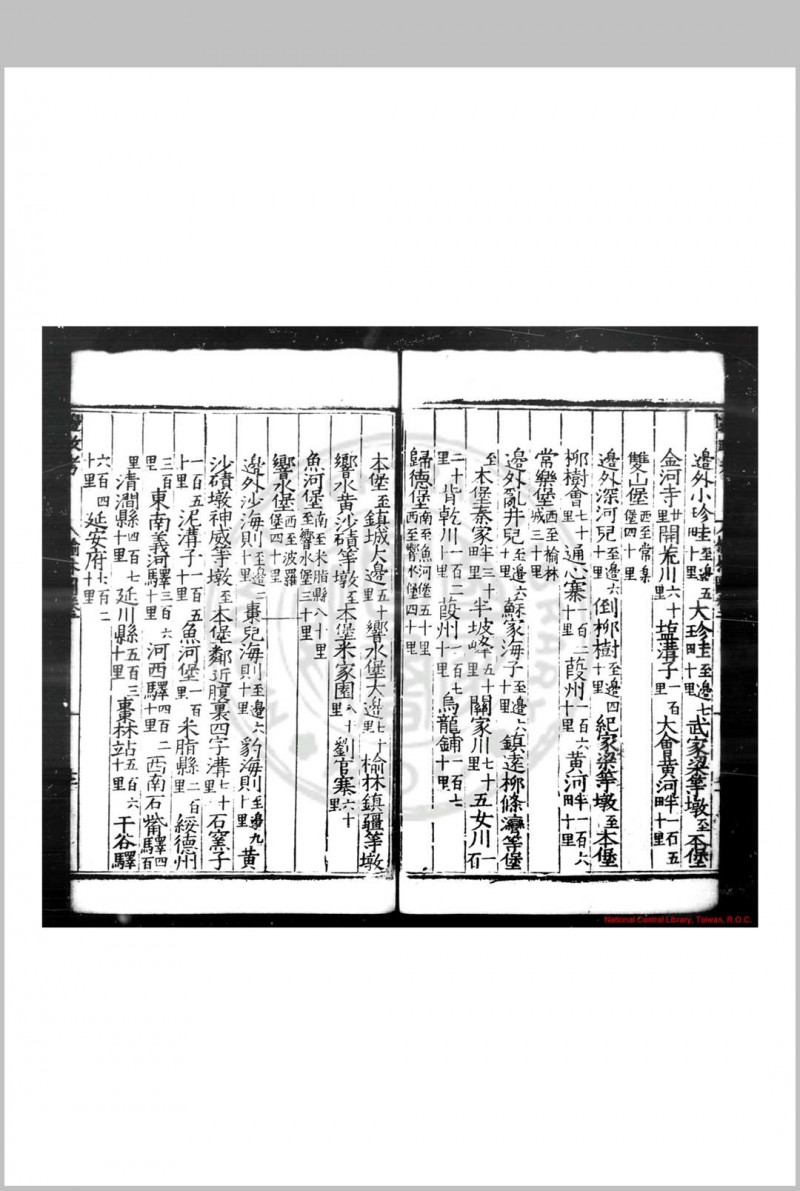 邊外小珍畦至邊五十里大珍畦至邊七十里武家梁等墩至本堡
金河寺廿里開荒川六十里塩溝子一百里大會黃河畔一百五十里
雙山堡西至常樂堡四十里
邊外深河兒至邊六十里倒柳樹至邊四十里紀家梁等墩至本堡
柳樹會七十里通心寨一百二十里葭州一百六十里黃河畔一百六十里
常樂堡西至榆林城三十里
邊外亂井兒至邊六十里蘇家海子至邊六十里鎮遠柳條灣等堡
至本堡秦家畔三十里半坡峰五十里關家川七十里五女川一百
二十里背乾川一百二十里葭州一百七十里烏龍鋪一百七十里
歸德堡南至魚河堡五十里西至響水堡四十里
本堡至鎮城大邊五十里響水堡大邊七十里榆林鎮疆等墩
響水黃沙磧等墩至本堡米家園八十里劉官寨六十里
魚河堡南至米脂縣八十里至響水堡三十里
響水堡西至波羅堡四十里
邊外沙海則至邊二十里棗兒海則至邊六十里豹海則至邊九十里黃
沙磧墩神威等墩至本堡鄰近腹裏四字溝七十里石窯子
一百五十里泥溝子一百五十里魚河堡一百里米脂縣二百里綏德州
三百里東南義河驛三百六十里河西驛四百二十里西南石觜驛四百
里清澗縣四百七十里延川縣五百三十里棗林站五百六十里干谷驛
六百四十里延安府七百二十里
National Central Library, Taiwan, R.O.C.